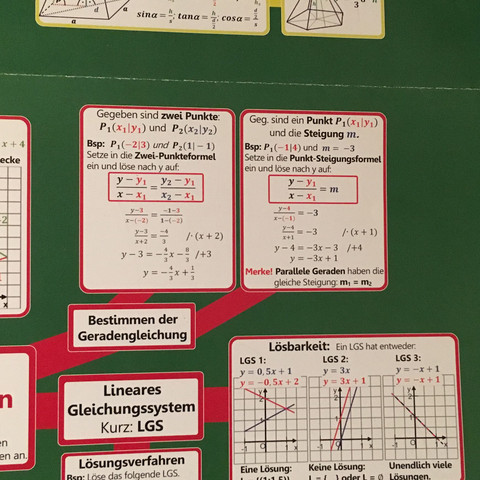 a
d
a
sin α = ; tan α = ; cos α =
3
x + 4
ecke
-2
x
Gegeben sind zwei Punkte:
P₁(x₁|y₁) und P₂(x₂|y₂)
Bsp: P₁(−2|3) und P₂(1|−1)
Setze in die Zwei-Punkteformel
ein und löse nach y auf:
(y − y₁)/(x − x₁) = (y₂ − y₁)/(x₂ − x₁)
(y−3)/(x−(−2)) = (−1−3)/(1−(−2))
(y−3)/(x+2) = −4/3 /· (x + 2)
y − 3 = −4/3 x − 8/3 /+3
y = −4/3 x + 1/3
Geg. sind ein Punkt P₁(x₁|y₁)
und die Steigung m.
Bsp: P₁(−1|4) und m = −3
Setze in die Punkt-Steigungsformel
ein und löse nach y auf:
(y − y₁)/(x − x₁) = m
(y−4)/(x−(−1)) = −3
(y−4)/(x+1) = −3 /· (x + 1)
y − 4 = −3x − 3 /+4
y = −3x + 1
Merke! Parallele Geraden haben die
gleiche Steigung: m₁ = m₂
Bestimmen der
Geradengleichung
n
en
en an.
Lineares
Gleichungssystem
Kurz: LGS
Lösungsverfahren
Bsp: Löse das folgende LGS.
Lösbarkeit: Ein LGS hat entweder:
LGS 1: LGS 2: LGS 3:
y = 0,5x + 1 y = 3x y = −x + 1
y = −0,5x + 2 y = 3x + 1 y = −x + 1
Eine Lösung: Keine Lösung: Unendlich viele
oder L = ∅ Lösungen.